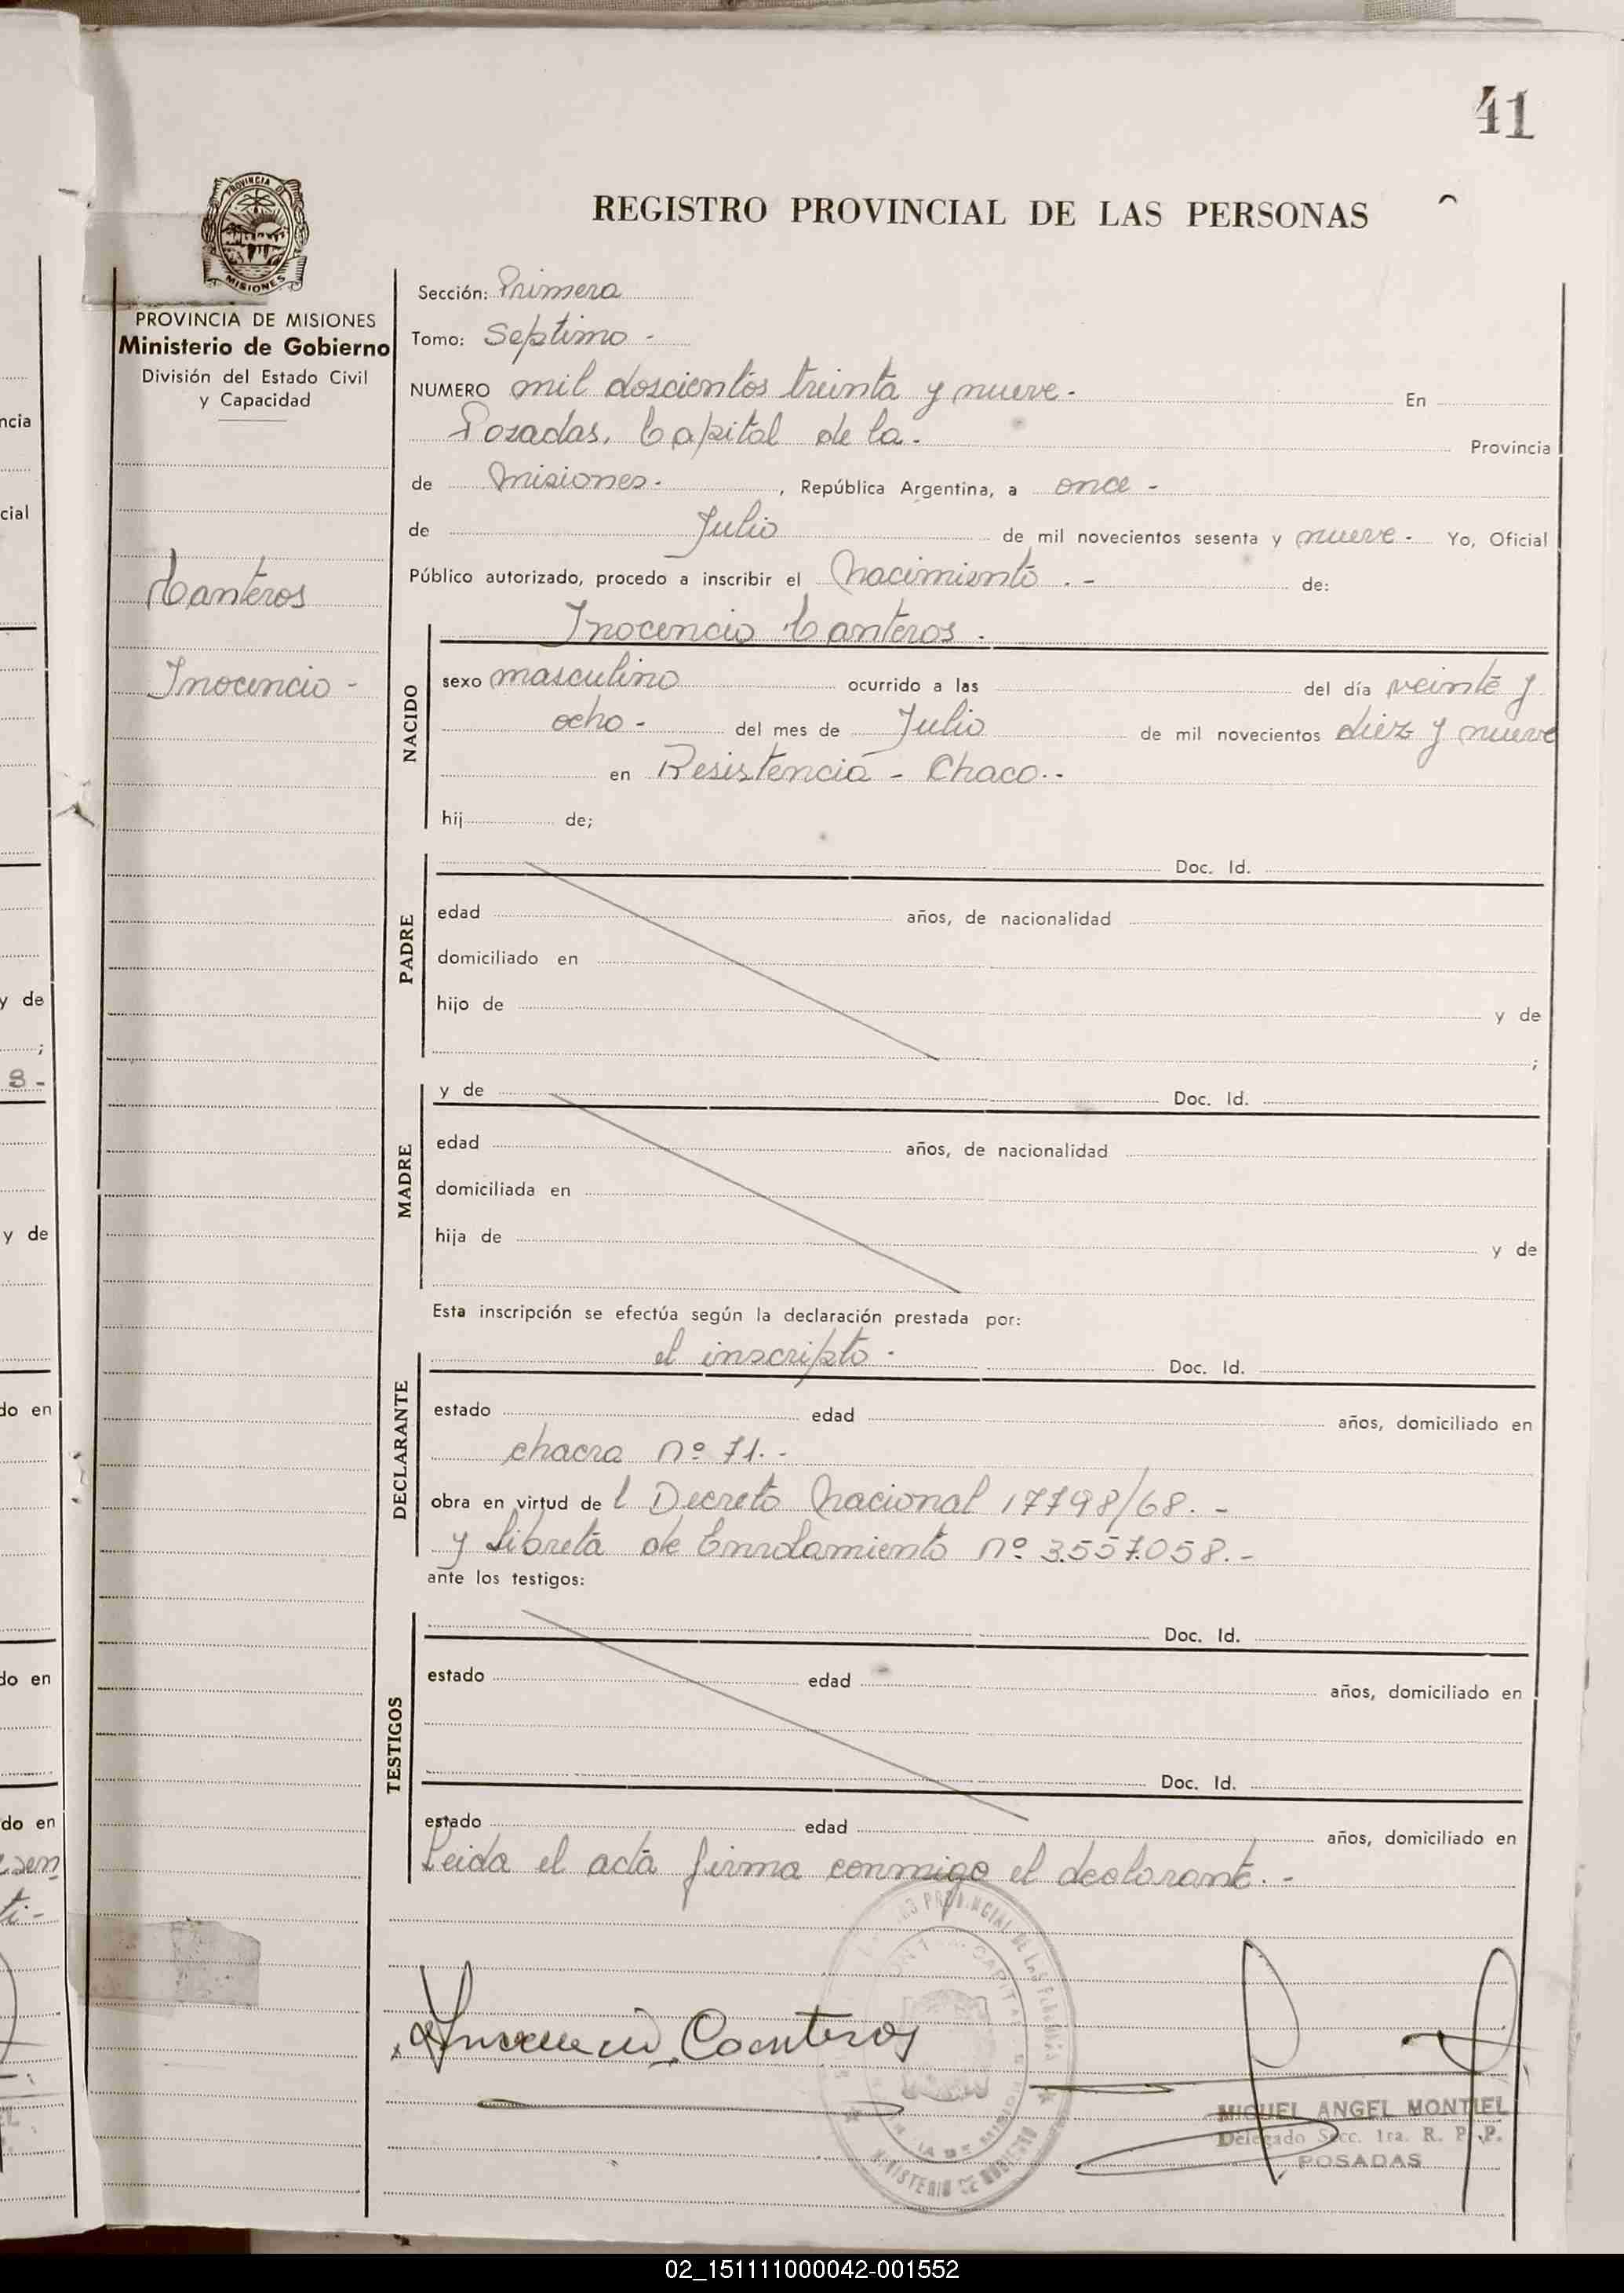 41
PROVINCIA DE
MISIONES
REGISTRO PROVINCIAL DE LAS PERSONAS
PROVINCIA DE MISIONES
Ministerio de Gobierno
División del Estado Civil
y Capacidad
Canteros
Inocencio -
Sección: Primera
Tomo: Septimo -
NUMERO mil doscientos treinta y nueve - En
Posadas, Capital de la - Provincia
de Misiones - , República Argentina, a once -
de Julio de mil novecientos sesenta y nueve - Yo, Oficial
Público autorizado, procedo a inscribir el Nacimiento . - de:
NACIDO
Inocencio Canteros .
sexo masculino ocurrido a las del día veinte y
ocho - del mes de Julio de mil novecientos diez y nueve
en Resistencia - Chaco. -
hij de;
PADRE
Doc. Id.
edad años, de nacionalidad
domiciliado en
hijo de y de
;
MADRE
y de Doc. Id.
edad años, de nacionalidad
domiciliada en
hija de y de
Esta inscripción se efectúa según la declaración prestada por:
DECLARANTE
el inscripto - Doc. Id.
estado edad años, domiciliado en
chacra nº 71. -
obra en virtud de l Decreto Nacional 17798/68. -
y Libreta de Enrolamiento nº 3.557.058. -
ante los testigos:
TESTIGOS
Doc. Id.
estado edad años, domiciliado en
Doc. Id.
estado edad años, domiciliado en
Leida el acta firma conmigo el declarante. -
Inocencio Canteros
MINISTERIO DE GOBIERNO
MIGUEL ANGEL MONTIEL
Delegado Secc. 1ra. R. P. P.
POSADAS
ncia
cial
y de
;
8 -
y de
do en
do en
do en
02_151111000042-001552